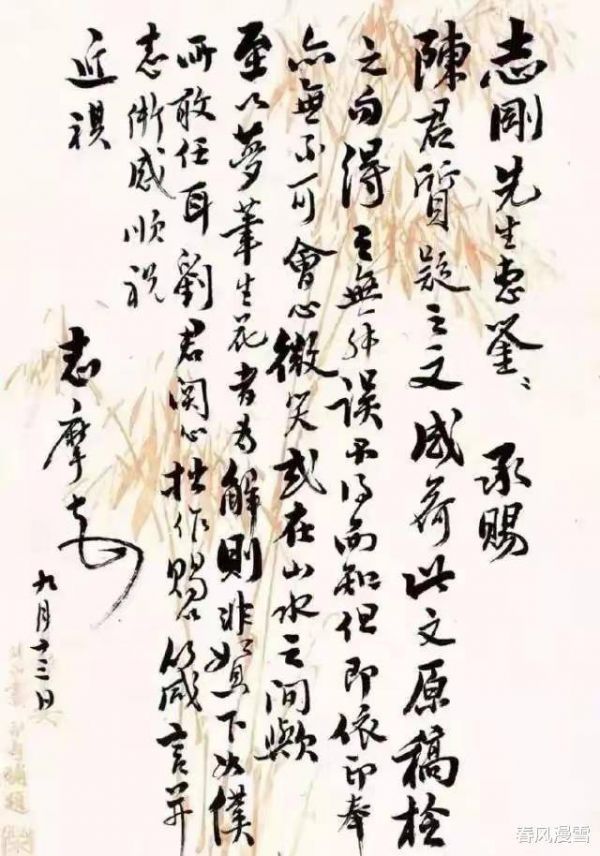 志剛先生惠鑒、承賜
陳君質疑之文感荷此文原稿檢
之而得之無
誤不得而知但即依印奉
亦無不可會心微笑或在山水之間歟
至以夢筆生花者為解則非媿下如僕
所敢任耳劉君関心拙作賜以箴言并
志銜感順祝
近祺
志摩
九月十三日
春风漫雪